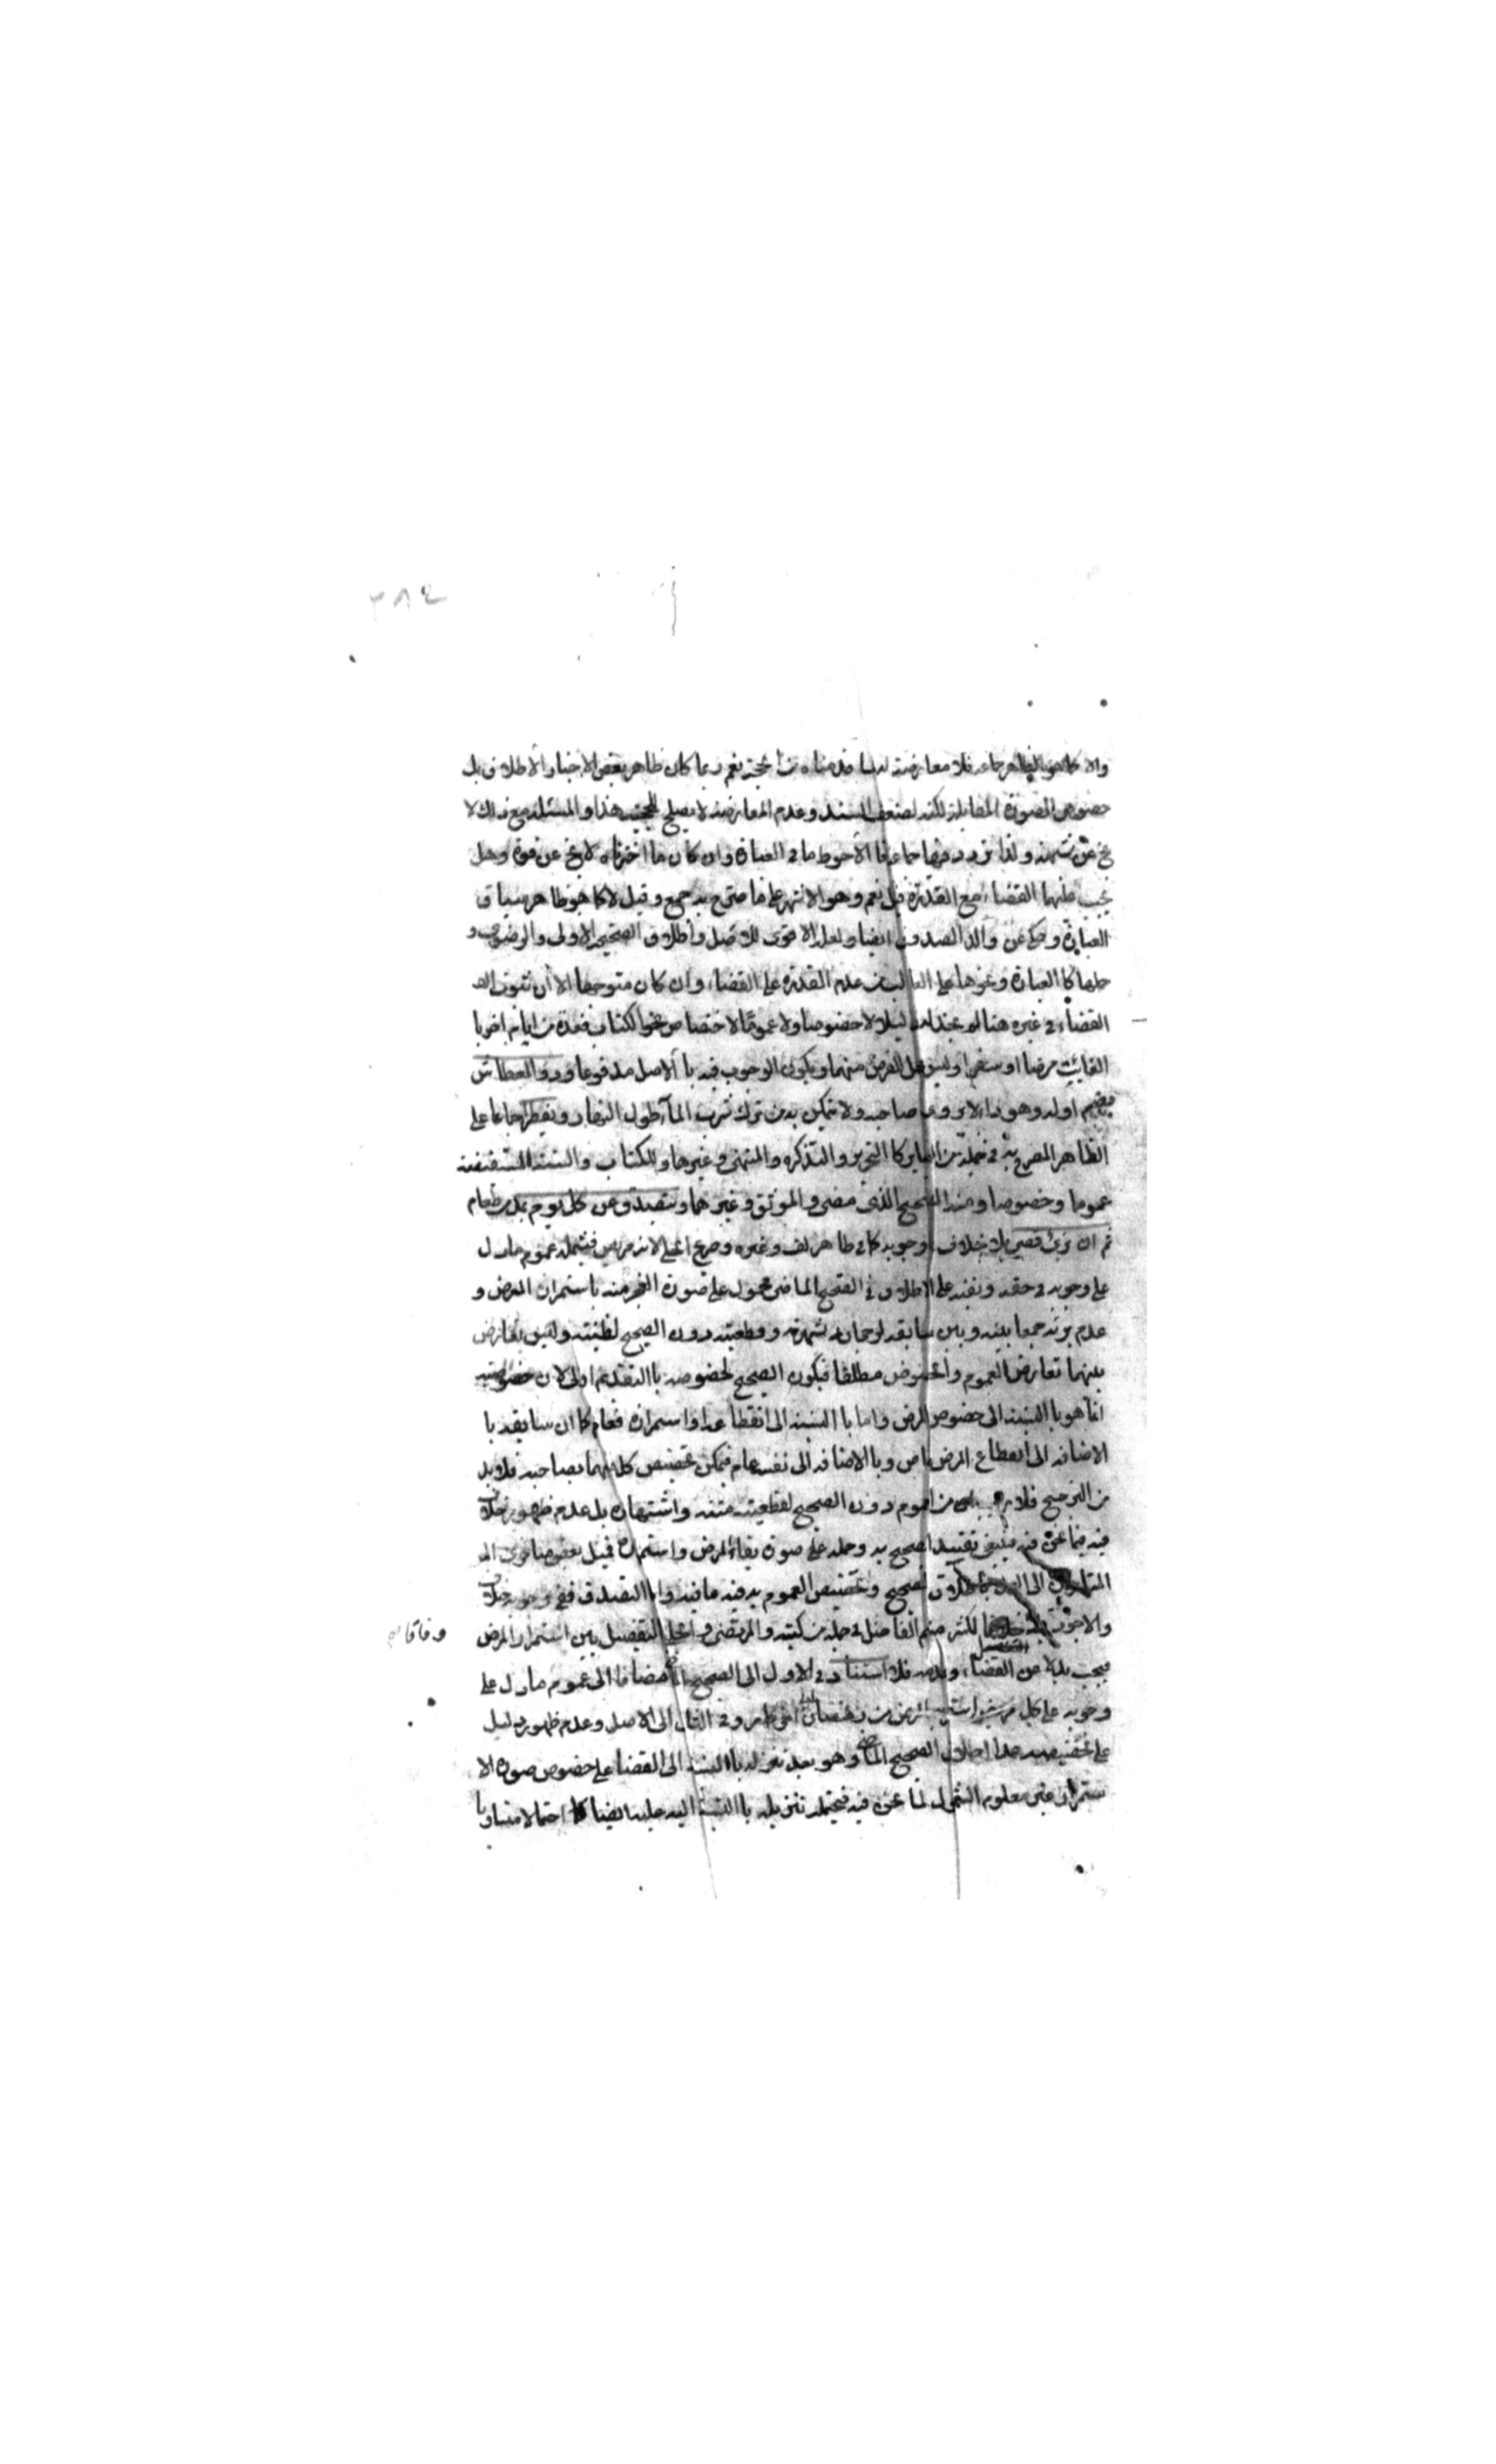 ٣٨٤
والا كما هو الظاهر جماعه فلا معارضة لما قدمناه من الحجة نعم ربما كان ظاهر بعض الاخبار الاطلاق بل
خصوص الصورة المقابلة لكنه لضعف السند وعدم المعارضة لا يصلح للحجية هذا والمسئلة مع ذلك لا
يخ عن شبهة ولذا تردد فيها جماعة فالأحوط ما في العبارة وان كان ما اخترناه لا يخ عن قوة وهل
يجب عليهما القضاء مع القدرة قيل نعم وهو الاشهر على ما صرح به جمع وقيل لا كما هو ظاهر سياق
العبارة وحكي عن والد الصدوق ايضا ولعله الاقوى للاصل واطلاق الصحيح الاولى والرضوي و
حملها كالعبارة وغيرها على الغالب من عدم القدرة على القضاء وان كان متوجها الا أن ثبوت
القضاء في غيره هنا لم نجد له دليلا لا خصوصا ولا عموما لاختصاص نحو الكتاب فعدة من ايام اخر با
الفائت مرضا او سفرا وليس محل الفرض منهما ويكون الوجوب فيه با الاصل مدفوعا وذو العطاش
بضم اوله وهو داء لا يروى صاحبه ولا يتمكن به من ترك شرب الماء طول النهار ويفطر اجماعا على
الظاهر المصرح به في جملة من العباير كا التحرير والتذكره والمنتهى وغيرها وللكتاب والسنة المستفيضة
عموما وخصوصا ومنه الصحيح الذي مضى والموثق وغيرهما ويتصدق عن كل يوم بمد من طعام
ثم ان برئ قضى بلا خلاف وجوبه كما في ظاهر لف وغيره وصريح الحلي لانه مريض فيشمله عموم ما دل
على وجوبه في حقه ونفيه على الاطلاق في الصحيح الماضي محمول على صورة العجز منه باستمرار المرض و
عدم برئه جمعا بينه وبين سابقه لرجحانه شهرة وقطعيته دون الصحيح لظنيته وليس تعارض
بينهما تعارض العموم والخصوص مطلقا فيكون الصحيح لخصوصه با التقديم اولى لان خصوصيته
انما هو با النسبة الى خصوص المرض واما با النسبة الى انقطاعه او استمراره فعام كما ان سابقه با
الاضافه الى انقطاع المرض خاص وبا الاضافه الى نفسه عام فيمكن تخصيص كل منهما بصاحبه فلا بد
من الترجيح دون الصحيح لقطعية متنه واشتهاره بل عدم ظهور خلاف
فيه فيما نحن فيه فينبغي تقييد الصحيح به وحمله على صورة بقاء المرض واستمراره فميل بعض
الى العمل باطلاق الصحيح وتخصيص العموم به فيه ما فيه واما التصدق ففي وجوبه خلاف
والاجود لاكثر منهم الفاضل في جملة من كتبه والمرتضى والحلي التفصيل بين استمرار المرض
وفاقا
فيجب بدلا من القضاء وعدمه فلا استنادا في الاول الى الصحيح الماض مضافا الى عموم ما دل على
وجوبه على كل مريض استمر به المرض من رمضان الى اخر وفي الثاني الى الاصل وعدم ظهور دليل
على تخصيصه عدا اطلاق الصحيح الماض وهو بعد تنزله با النسبة الى القضا على خصوص صورة الا
ستمرار غير معلوم الشمول لما نحن فيه فيحتمل تنزيله با النسبة اليه عليها ايضا احتمالا متساويا